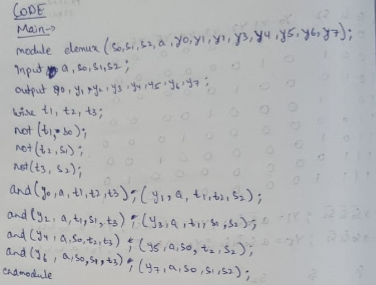 CODE
Main→
module demux (s0,s1,s2,a,y0,y1,y2,y3,y4,y5,y6,y7);
input a, s0,s1,s2;
output y0,y1,y2,y3,y4,y5,y6,y7;
wire t1, t2, t3;
not(t1,s0);
not(t2,s1);
not(t3, s2);
and(y0,a,t1,t2,t3);(y1,a,t1,t2,s2);
and(y2,a,t1,s1,t3);(y3,a,t1,s1,s2);
and(y4,a,s0,t2,t3);(y5,a,s0,t2,s2);
and(y6,a,s0,s1,t3);(y7,a,s0,s1,s2);
endmodule